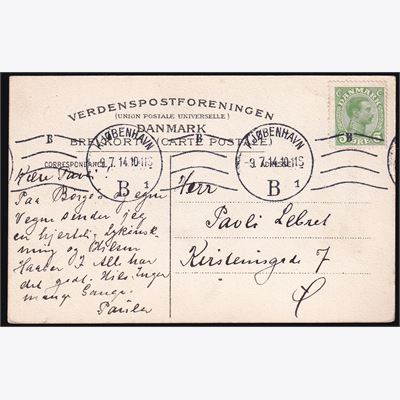 VERDENSPOSTFORENINGEN
(UNION POSTALE UNIVERSELLE)
DANMARK
BREVKORT (CARTE POSTALE)
CORRESPONDANCE
DANMARK
5 ØRE 5
KJØBENHAVN
9.7.14.10-11
B 1
B
KJØBENHAVN
9.7.14.10-11
B 1
B
Kære Pavli
Paa Borges og egne
Vegne sender jeg
en hjertelig Lykønsk-
ning og Hilsen
Haaber I Alle har
det godt. Hils Inger
mange Gange.
Herr
Pavli Lebret
Kirsteinsgade 7